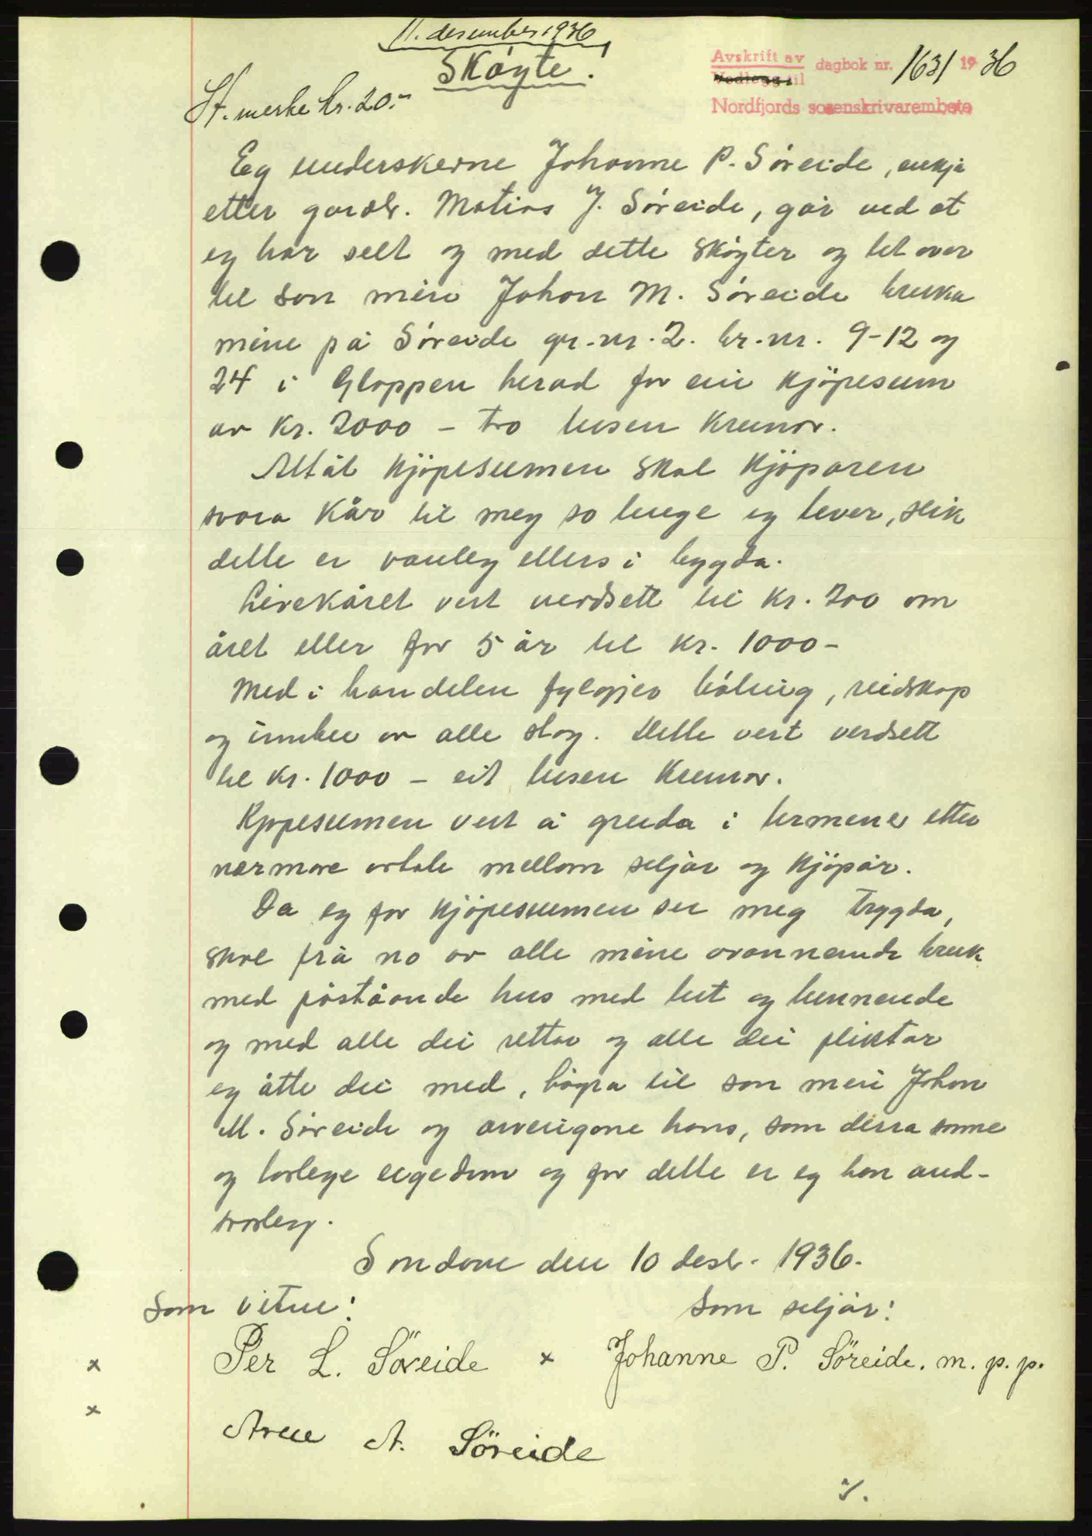 11. desember 1936
Skøyte!
Avskrift av dagbok nr. 1631 1936
Vedlegg til
Nordfjords sorenskrivarembete
St. merke kr. 20.-
Eg underskerne Johanne P. Søreide, enkja
etter gardbr. Matias J. Søreide, går ved at
eg har selt og med dette skøyter og let over
til son min Johan M. Søreide bruka
mine på Søreide gr.nr. 2. br.nr. 9-12 og
24 i Gloppen herad for ein kjöpesum
av kr. 2000 - tvo tusen kronor.
Attåt kjöpesumen skal kjöparen
svara kår til meg so lenge eg lever, slik
dette er vanleg ellers i bygda.
Livekåret vert verdsett til kr. 200 om
året eller for 5 år til kr. 1000-
Med i handelen fylgjer böling, reidskap
og innbu av alle slag. Dette vert verdsett
til kr. 1000 - eit tusen kronor.
Kjöpesumen vert å greida i terminer etter
nærmare avtale mellom seljar og kjöpar.
Da eg for kjöpesumen ser meg trygda,
skal frå no av alle mine ovannemnde bruk
med påståande hus med lut og lunnende
og med alle dei rettar og alle dei pliktar
eg åtte dei med, høyra til son min Johan
M. Søreide og arvingane hans, som deira sanne
og lovlege eigedom og for dette er eg han and-
svarleg.
Sandane den 10 desbr. 1936.
Som vitne:
Som seljar:
x Per L. Søreide x Johanne P. Söreide. m. p. p.
x
Arne A. Söreide